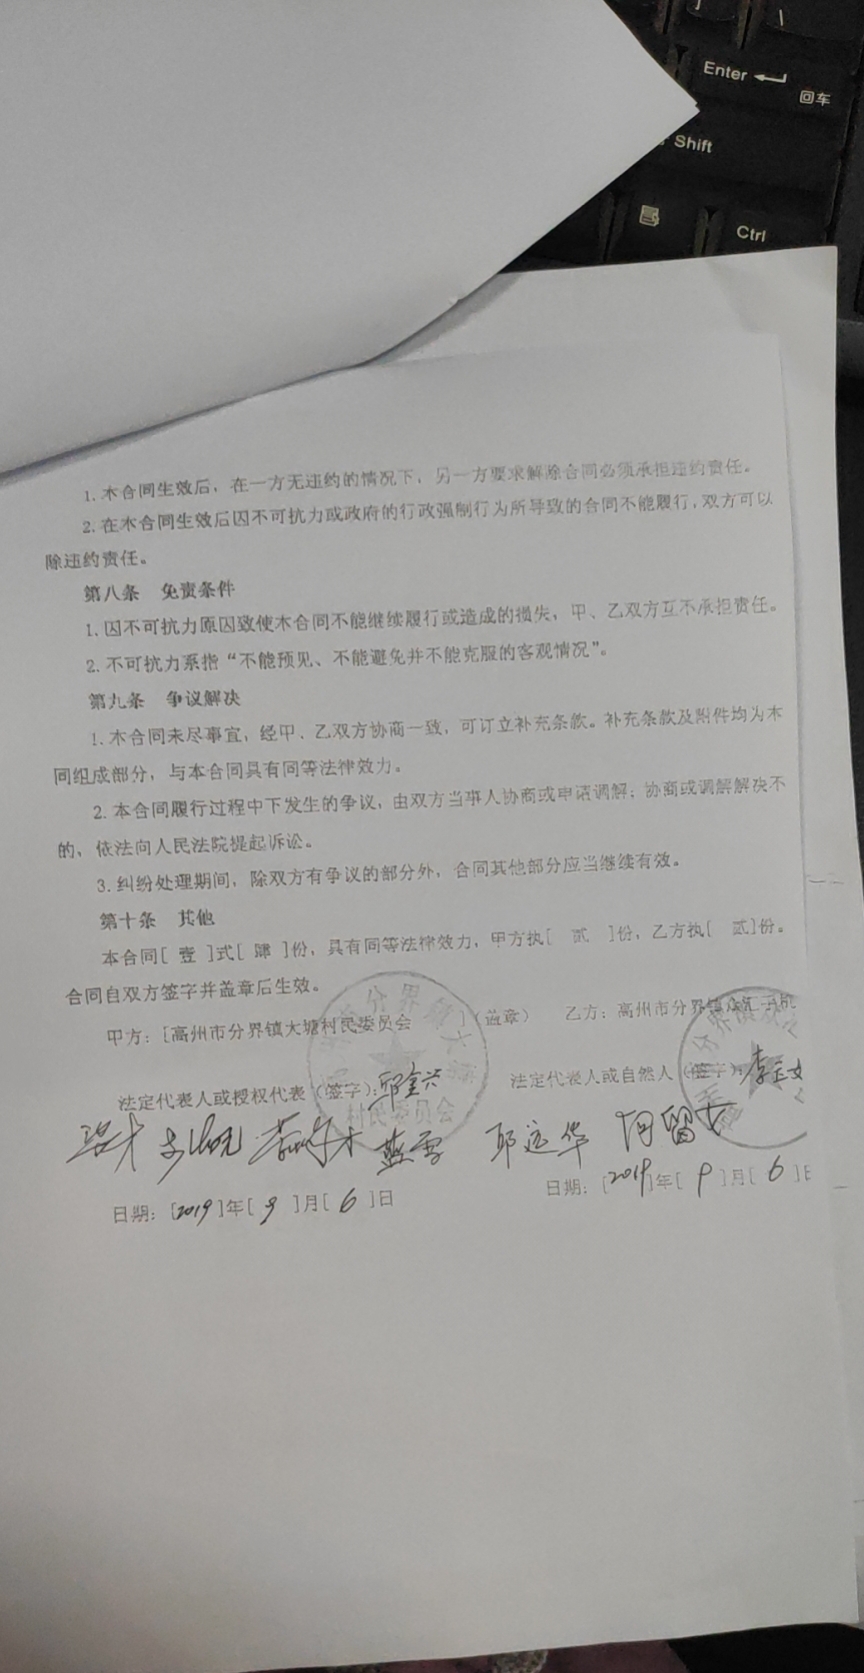 Enter
回车
Shift
Ctrl
1. 本合同生效后，在一方无违约的情况下，另一方要求解除合同必须承担违约责任。
2. 在本合同生效后因不可抗力或政府的行政强制行为所导致的合同不能履行，双方可以
除违约责任。
第八条 免责条件
1. 因不可抗力原因致使本合同不能继续履行或造成的损失，甲、乙双方互不承担责任。
2. 不可抗力系指“不能预见、不能避免并不能克服的客观情况”。
第九条 争议解决
1. 本合同未尽事宜，经甲、乙双方协商一致，可订立补充条款。补充条款及附件均为本
同组成部分，与本合同具有同等法律效力。
2. 本合同履行过程中下发生的争议，由双方当事人协商或申请调解；协商或调解解决不
的，依法向人民法院提起诉讼。
3. 纠纷处理期间，除双方有争议的部分外，合同其他部分应当继续有效。
第十条 其他
本合同[ 壹 ]式[ 肆 ]份，具有同等法律效力，甲方执[ 贰 ]份，乙方执[ 贰]份。
合同自双方签字并盖章后生效。
甲方：[高州市分界镇大塘村民委员会 ]（盖章） 乙方：高州市分界镇
法定代表人或授权代表（签字）： 法定代表人或自然人（签字）：
村民委员会
邓运华
日期：[2019]年[ 9 ]月[ 6 ]日 日期：[2019]年[ 9 ]月[ 6 ]日